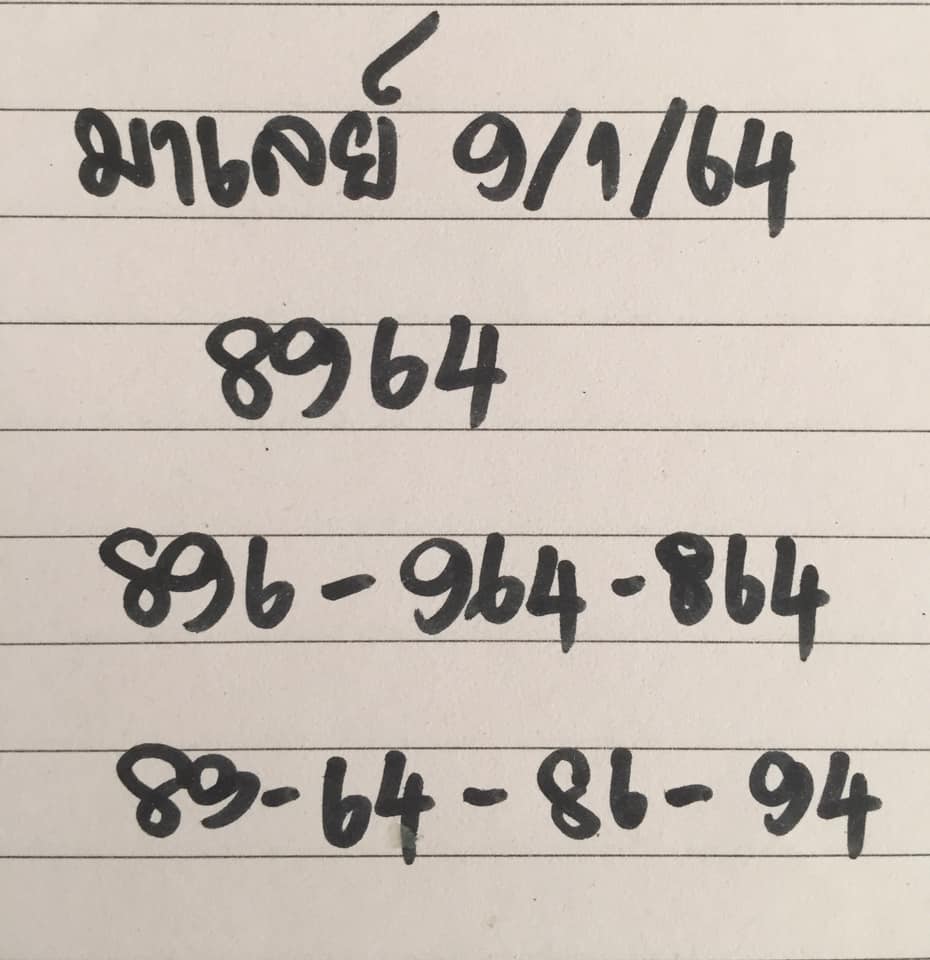 มาเลย์ 9/1/64
8964
896-964-864
89-64-86-94